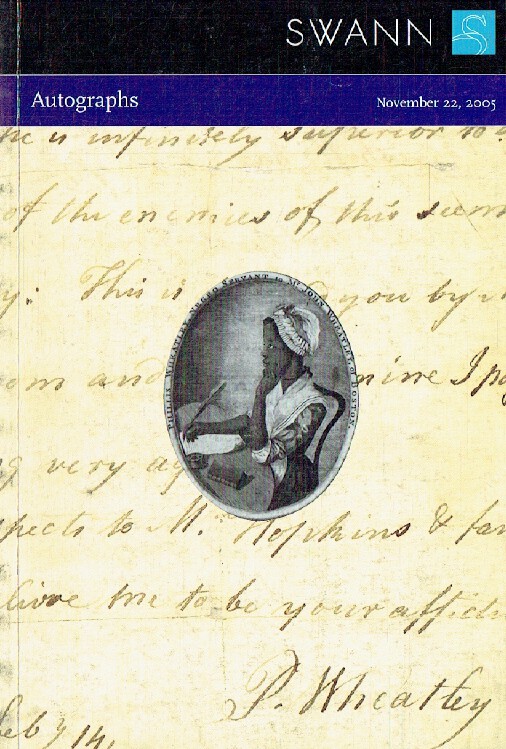 SWANN
Autographs
November 22, 2005
he is infinitely superior to
of the enemies of this
y: This is you by
om and mine I
g very
pects to M. Hopkins & fam
lieve me to be your affecti
P. Wheatley
PHILLIS WHEATLEY, NEGRO SERVANT to Mr. JOHN WHEATLEY, of BOSTON.